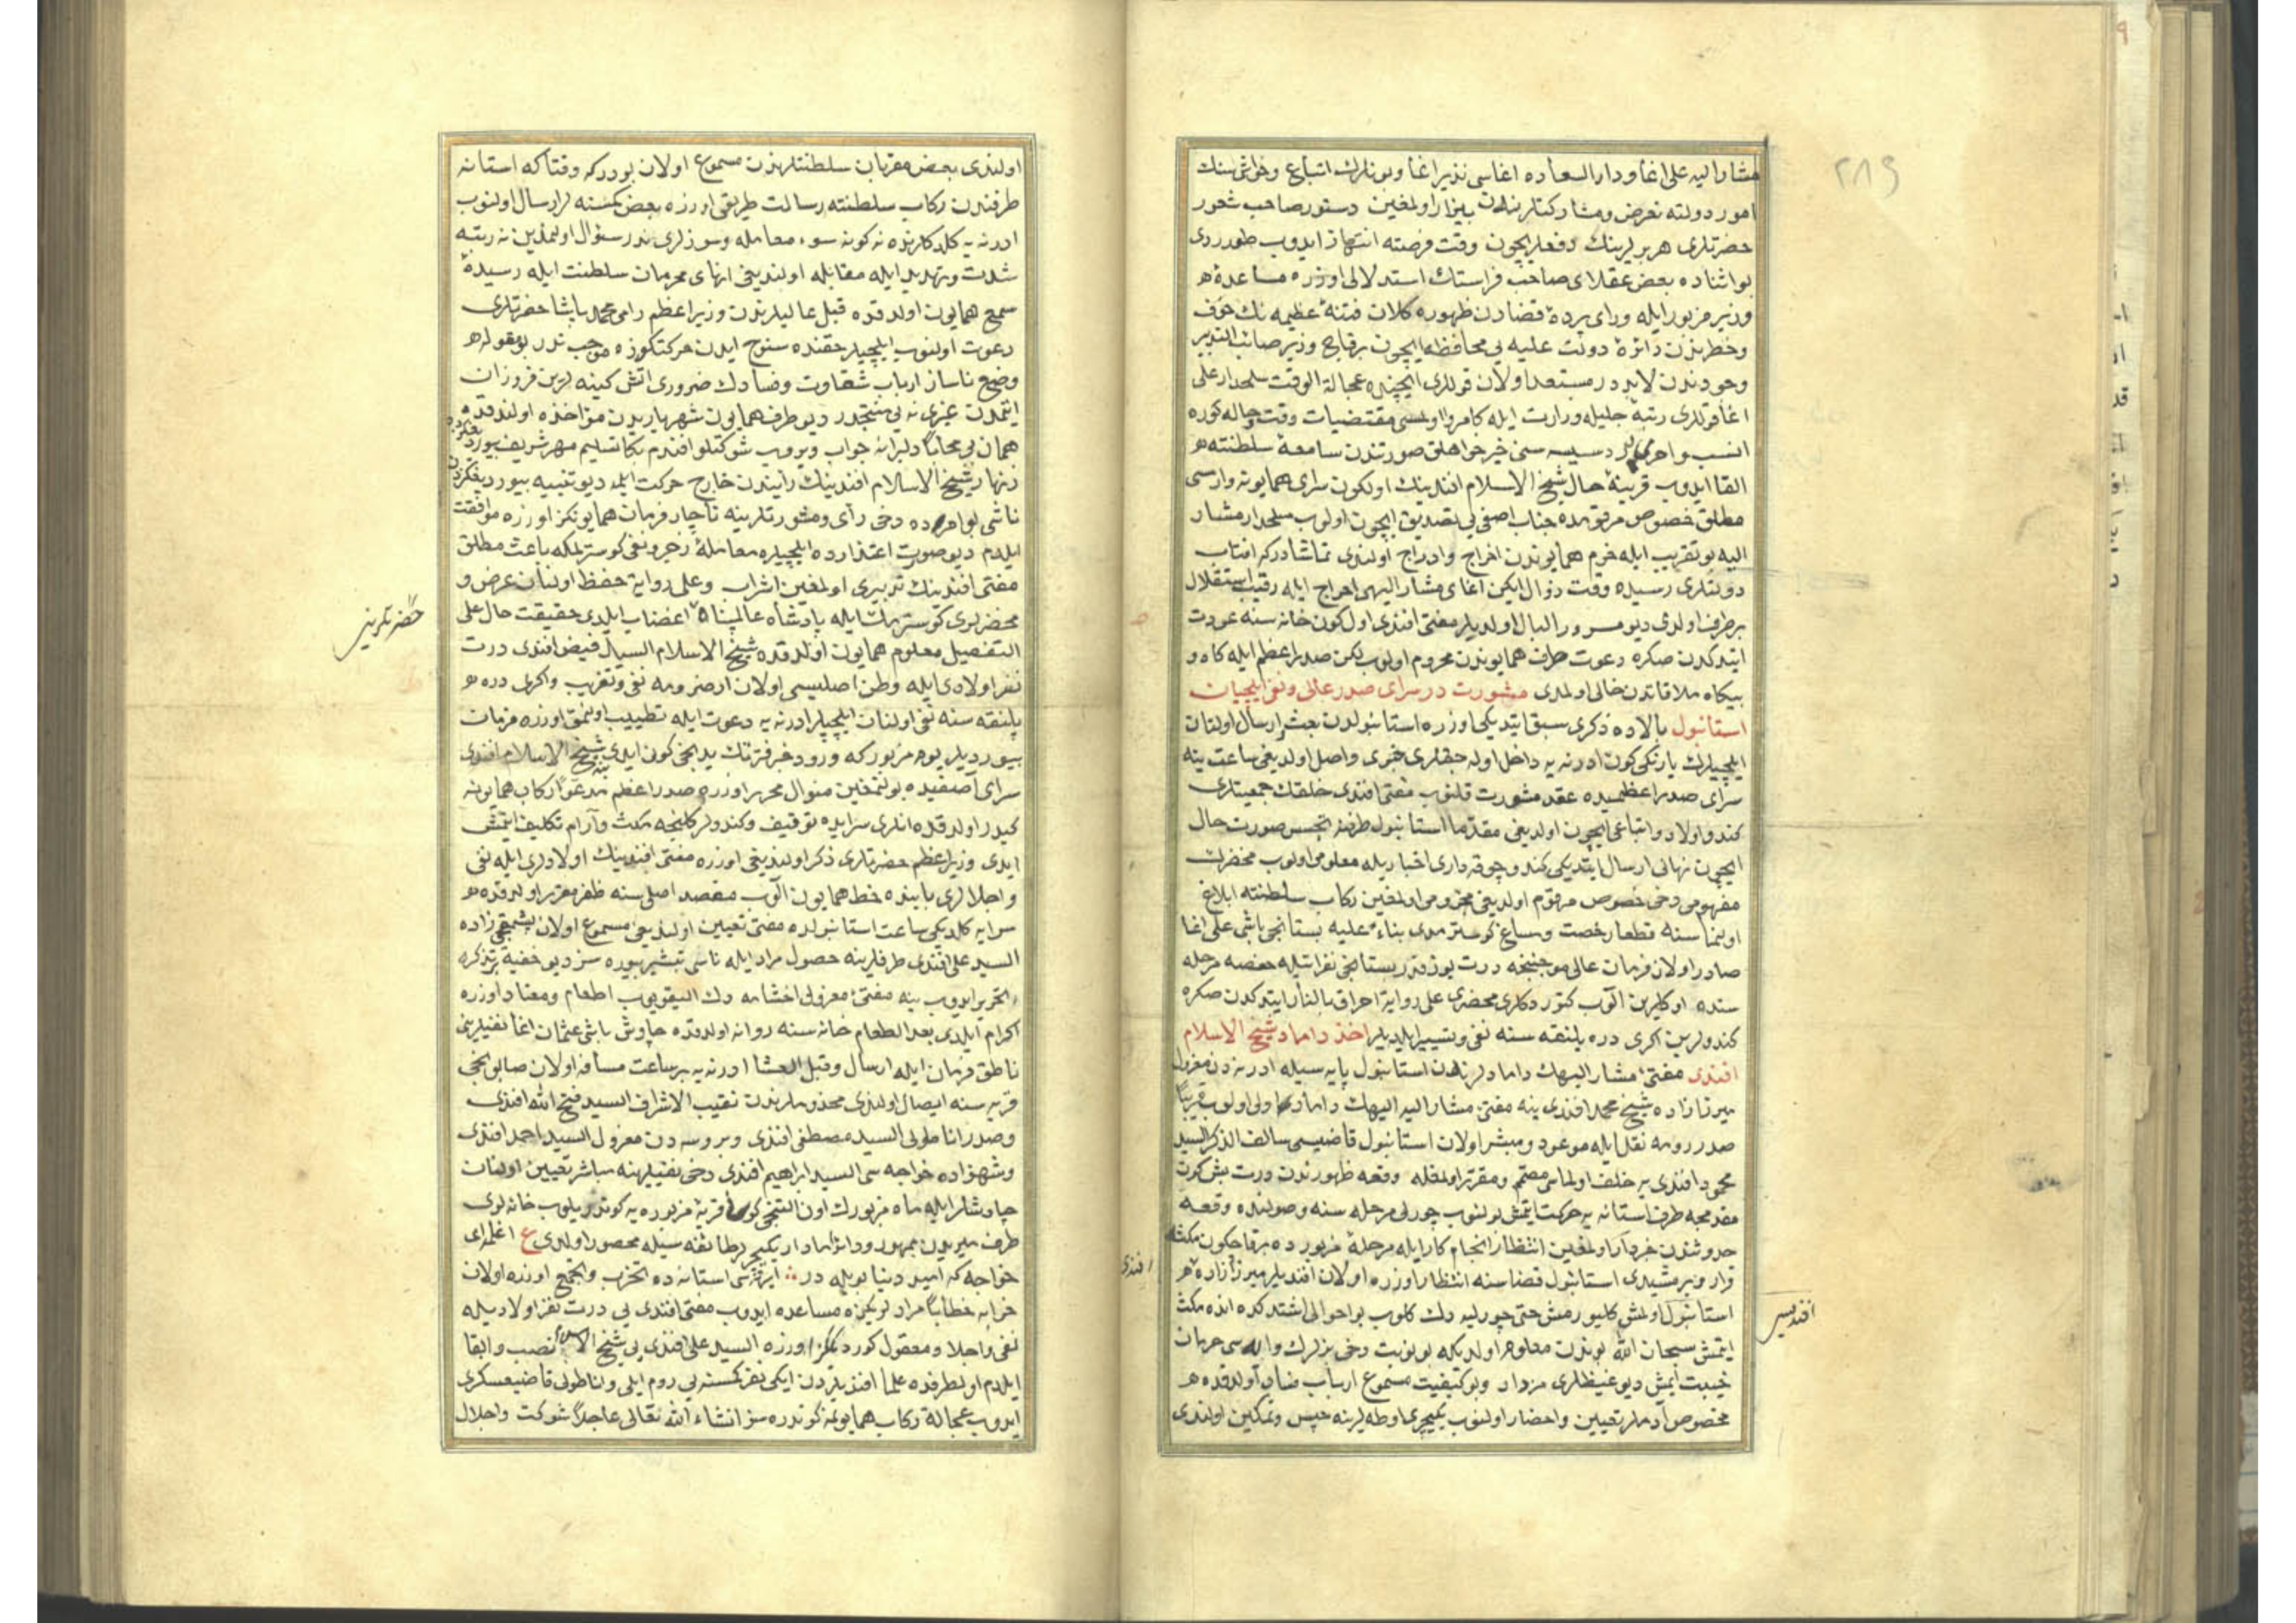 ٢٨٩
مشار اليه على اغا و دار السعاده اغاسى نذير اغا و بونلرك اتباع و حواشيسنك
امور دولته تعرض و مشاركتلرندن بيزار اولمغين دستور صاحب شعور
حضرتلرى هر برلرينك دفعلريچون وقت فرصته انتهاز ايدوب طورردى
بو اثناده بعض عقلاى صاحب فراستك استدلالى اوزره مساعده
وزير مزبور ايله وراى پرده قضادن ظهوره كلان فتنه عظيمه نك خوف
و خطرندن دائره دولت عليه يى محافظه ايچون برقاچ وزير صائب التدبير
وجودندن لابددر مستعد اولان قوللرى ايچنده عجالة الوقت سلحدار على
اغا قوللرى رتبه جليله وزارت ايله كامروا اولمسى مقتضيات وقت و حاله كوره
انسب و احرى در دسيسه سنى خيرخواهلق صورتندن سامعه سلطنته
القا ايدوب قرينه حال شيخ الاسلام افندينك اولكون سراى همايونه وارمسى
مطلق خصوص مرقومده جناب آصفى يى تصديق ايچون اولوب سلحدار مشار
اليه بو تقريب ايله حرم همايوندن اخراج و ادراج اولندى تماشادركه افتاب
دولتلرى رسيده وقت زوال ايكن اغاى مشار اليهى اخراج ايله رقيب استقلال
برطرف اولدى ديو مسرور البال اولديلر مفتى افندى اول كون خانه سنه عودت
ايتدكدن صكره دعوت طرف همايوندن محروم اولوب لكن صدر اعظم ايله كاه و
بيكاه ملاقاتدن خالى اولمدى مشورت در سراى صدر عالى و نفى ايلچيان
استانبول بالاده ذكرى سبق ايتديكى اوزره استانبولدن بعث و ارسال اولنان
ايلچيلرك يارينكى كون ادرنه يه داخل اوله جقلرى خبرى واصل اولديغى ساعت ينه
سراى صدر اعظميده عقد مشورت قلنوب مفتى افندى خلقك جمعيتلرى
كندو و اولاد و اتباعى ايچون اولديغى مقدما استانبول طرفنه تجسس صورت حال
ايچون نهانى ارسال ايتديكى كندو چوقه دارى اخباريله معلومى اولوب محضرك
مفهومى دخى خصوص مرقوم اولديغى مجزومى اولمغين ركاب سلطنته ابلاغ
اولنماسنه قطعا رخصت و مساغ كوسترمدى بناء عليه بستانجى باشى على اغا
صادر اولان فرمان عالى موجبنجه درت يوز قدر بستانجى نفراتيله حفصه مرحله
سنده اوكلرين الوب كتوردكلرى محضرى على رواية احراق بالنار ايتدكدن صكره
كندولرين اكرى دره پلنقه سنه نفى و تسيير ايلديلر اخذ داماد شيخ الاسلام
افندى مفتئ مشار اليهك دامادلرندن استانبول پايه سيله ادرنه دن معزول
ميرزا زاده شيخ محمد افندى ينه مفتئ مشار اليهك دامادى اولوب قريبا
صدر رومه نقل ايله موعود و مبشر اولان استانبول قاضيسى سالف الذكر السيد
محمود افندى يه خلف اولماسى مصمم و مقرر اولمغله وقعه ظهورندن درت بش كون
مقدمجه طرف استانه يه حركت ايتمش بولنوب چورلى مرحله سنه وصولنده وقعه
حدوثندن خبردار اولمغين انتظار انجام كار ايله مرحله مزبورده برقاچ كون مكث
افندى
قرار ويرمشيدى استانبول قضاسنه انتظار اوزره اولان افنديلر ميرزا زاده
استانبول اولمش كليور مش حتى چورليه دك كلوب بو احوالى اشتدكده انده مكث
افنديسى
ايتمش سبحان الله بوندن معلوم اولديكه بو نوبت دخى بزلرك واله سى حرمان
خيبت ايمش ديو غيظلرى مزداد و بو كيفيت مسموع ارباب فساد اولدقده
مخصوص آدملر تعيين و احضار اولنوب يكيچرى اوطه لرينه حبس و تمكين اولندى
اولندى بعض مقربان سلطنتلرندن مسموع اولان بودركه وقتاكه استانه
طرفندن ركاب سلطنته رسالت طريقى اوزره بعض كمسنه لر ارسال اولنوب
ادرنه يه كلدكلرنده نه كونه سوء معامله و سوزلرى ندر سؤال اولنمادين نه رتبه
شدت و تهديد ايله مقابله اولنديغى انهاى محرمان سلطنت ايله رسيده
سمع همايون اولدقده قبل عاليلرندن وزير اعظم رامى محمد پاشا حضرتلرى
دعوت اولنوب ايلچيلر حقنده سنوح ايدن حركتكوزه موجب ندر بو مقوله
وضع ناساز ارباب شقاوت و فسادك ضرورى اتش كينه لرين فروزان
ايتمدن غيرى نه يى منتجدر ديو طرف همايون شهرياريدن مؤاخذه اولندقده
همان بى محابا دليرانه جواب ويروب شوكتلو افندم بكا تسليم مهر شريف بيوردقلرنده
زنهار شيخ الاسلام افندينك رأيندن خارج حركت ايلمه ديو تنبيه بيورديغكزدن
ناشى بو امرده دخى رأى و مشورتلرينه ناچار فرمان همايونكز اوزره موافقت
ايلدم ديو صورت اعتذارده ايلچيلره معامله زجر و نفى كوسترلمكه باعث مطلق
مفتى افندينك تدبيرى اولمغين اشراب و على رواية حفظ اولنان عرض و
محضرلرى كوسترمك ايله پادشاه عالمپناه اغضاب ايلدى حقيقت حال على
حضرتلرينى
التفصيل معلوم همايون اولدقده شيخ الاسلام السيد فيض افندى درت
نفر اولادى ايله وطن اصليسى اولان ارضرومه نفى و تغريب و اكرى دره
پلنقه سنه نفى اولنان ايلچيلر ادرنه يه دعوت ايله تطييب اولنمق اوزره فرمان
بيورديلر يوم مزبوركه ورود خبر فترتك يدنجى كون ايدى شيخ الاسلام افندى
سراى آصفيده بولنمغين منوال محرر اوزره صدر اعظم مدعوا ركاب همايونه
كيدر اولدقده انلرى سرايده توقيف و كندولر كلنجه مكث و آرام تكليف ايتمش
ايدى وزير اعظم حضرتلرى ذكر اولنديغى اوزره مفتى افندينك اولادلرى ايله نفى
و اجلالرى بابنده خط همايون الوب مقصد اصلى سنه ظفر مقرر اولدقده
سرايه كلديكى ساعت استانبولده مفتى تعيين اولنديغى مسموع اولان پشمقجى زاده
السيد على افندى طرفلرينه حصول مراد ايله ناسى تبشير بيوره سز ديو خفيه بر تذكره
تحرير ايدوب ينه مفتئ معزولى اخشامه دك اليقويوب اطعام و معتاد اوزره
اكرام ايلدى بعد الطعام خانه سنه روانه اولدقده چاوش باشى عثمان اغا نفيلرينى
ناطق فرمان ايله ارسال و قبل العشا ادرنه يه بر ساعت مسافه اولان صابونجى
قريه سنه ايصال اولندى مخدوملرندن نقيب الاشراف السيد فتح الله افندى
و صدر اناطولى السيد مصطفى افندى و بروسه دن معزول السيد احمد افندى
و شهزاده خواجه سى السيد ابراهيم افندى دخى نفيلرينه مباشر تعيين اولنان
چاوشلر ايله ماه مزبورك اون التنجى كونى قريه مزبوره يه كوندريلوب خانه لرى
طرف ميريدن ممهور و دائرا مادار يكيچريلر طائفه سيله محصور اولدى ع اغلمه اى
خواجه كه اميد دنيا بويله در ايرتسى استانه ده تحزب و تجمع اوزره اولان
خزانه خطابا مراد لريكزه مساعده ايدوب مفتى افندى يى درت نفر اولاديله
نفى و اجلا و معقول كورديككز اوزره السيد على افندى يى شيخ الاسلام نصب و ابقا
ايلدم اولطرفده علما افنديلردن ايكى نفر كمسنه يى روم ايلى و اناطولى قاضيعسكرى
ايدوب عجالة ركاب همايونمه كوندره سز انشاء الله تعالى عاجلا شوكت و اجلال